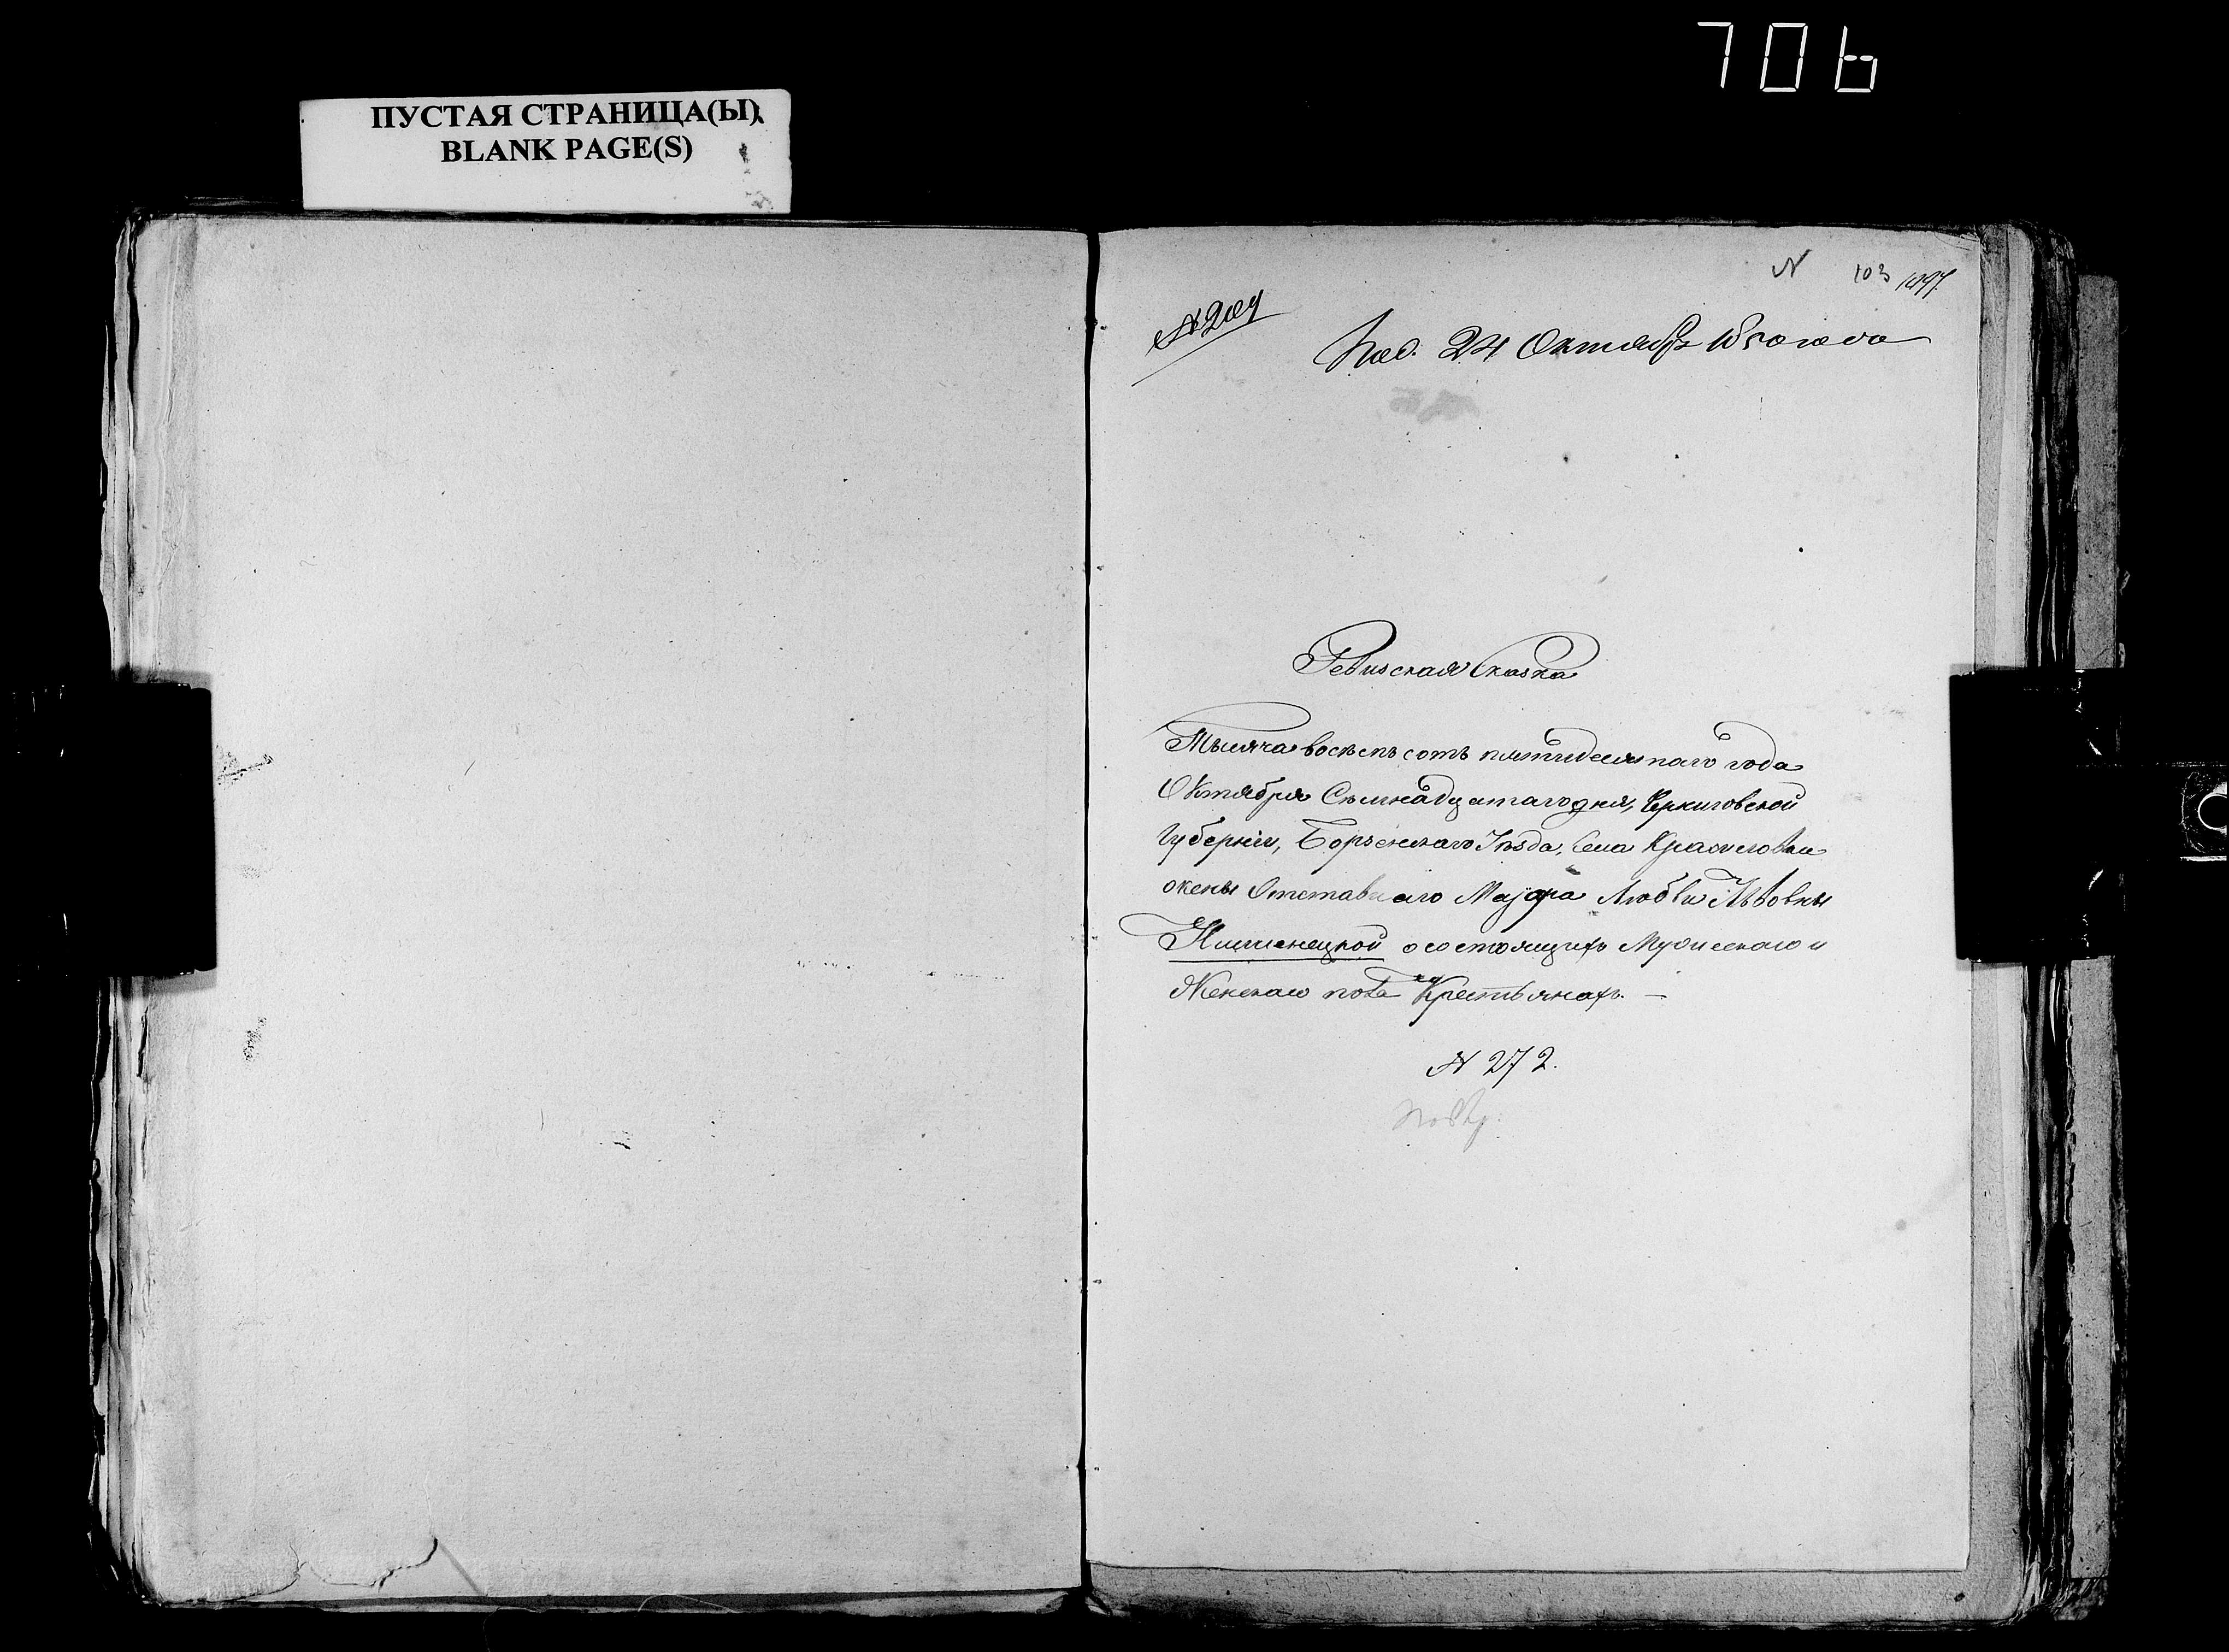 706
ПУСТАЯ СТРАНИЦА(Ы)
BLANK PAGE(S)
N 103
Под. 24 Октября 1850 года
Ревизская Сказка
Тысяча восемь сотъ пятидесятаго года
Октября Семнадцатаго дня, Черниговской
Губерніи, Борзенскаго Уѣзда, Села Красиловки
жены Отставнаго Маіора Любви Львовны
о состоящихъ Мужескаго и
Женскаго пола Крестьянахъ. —
N 272.